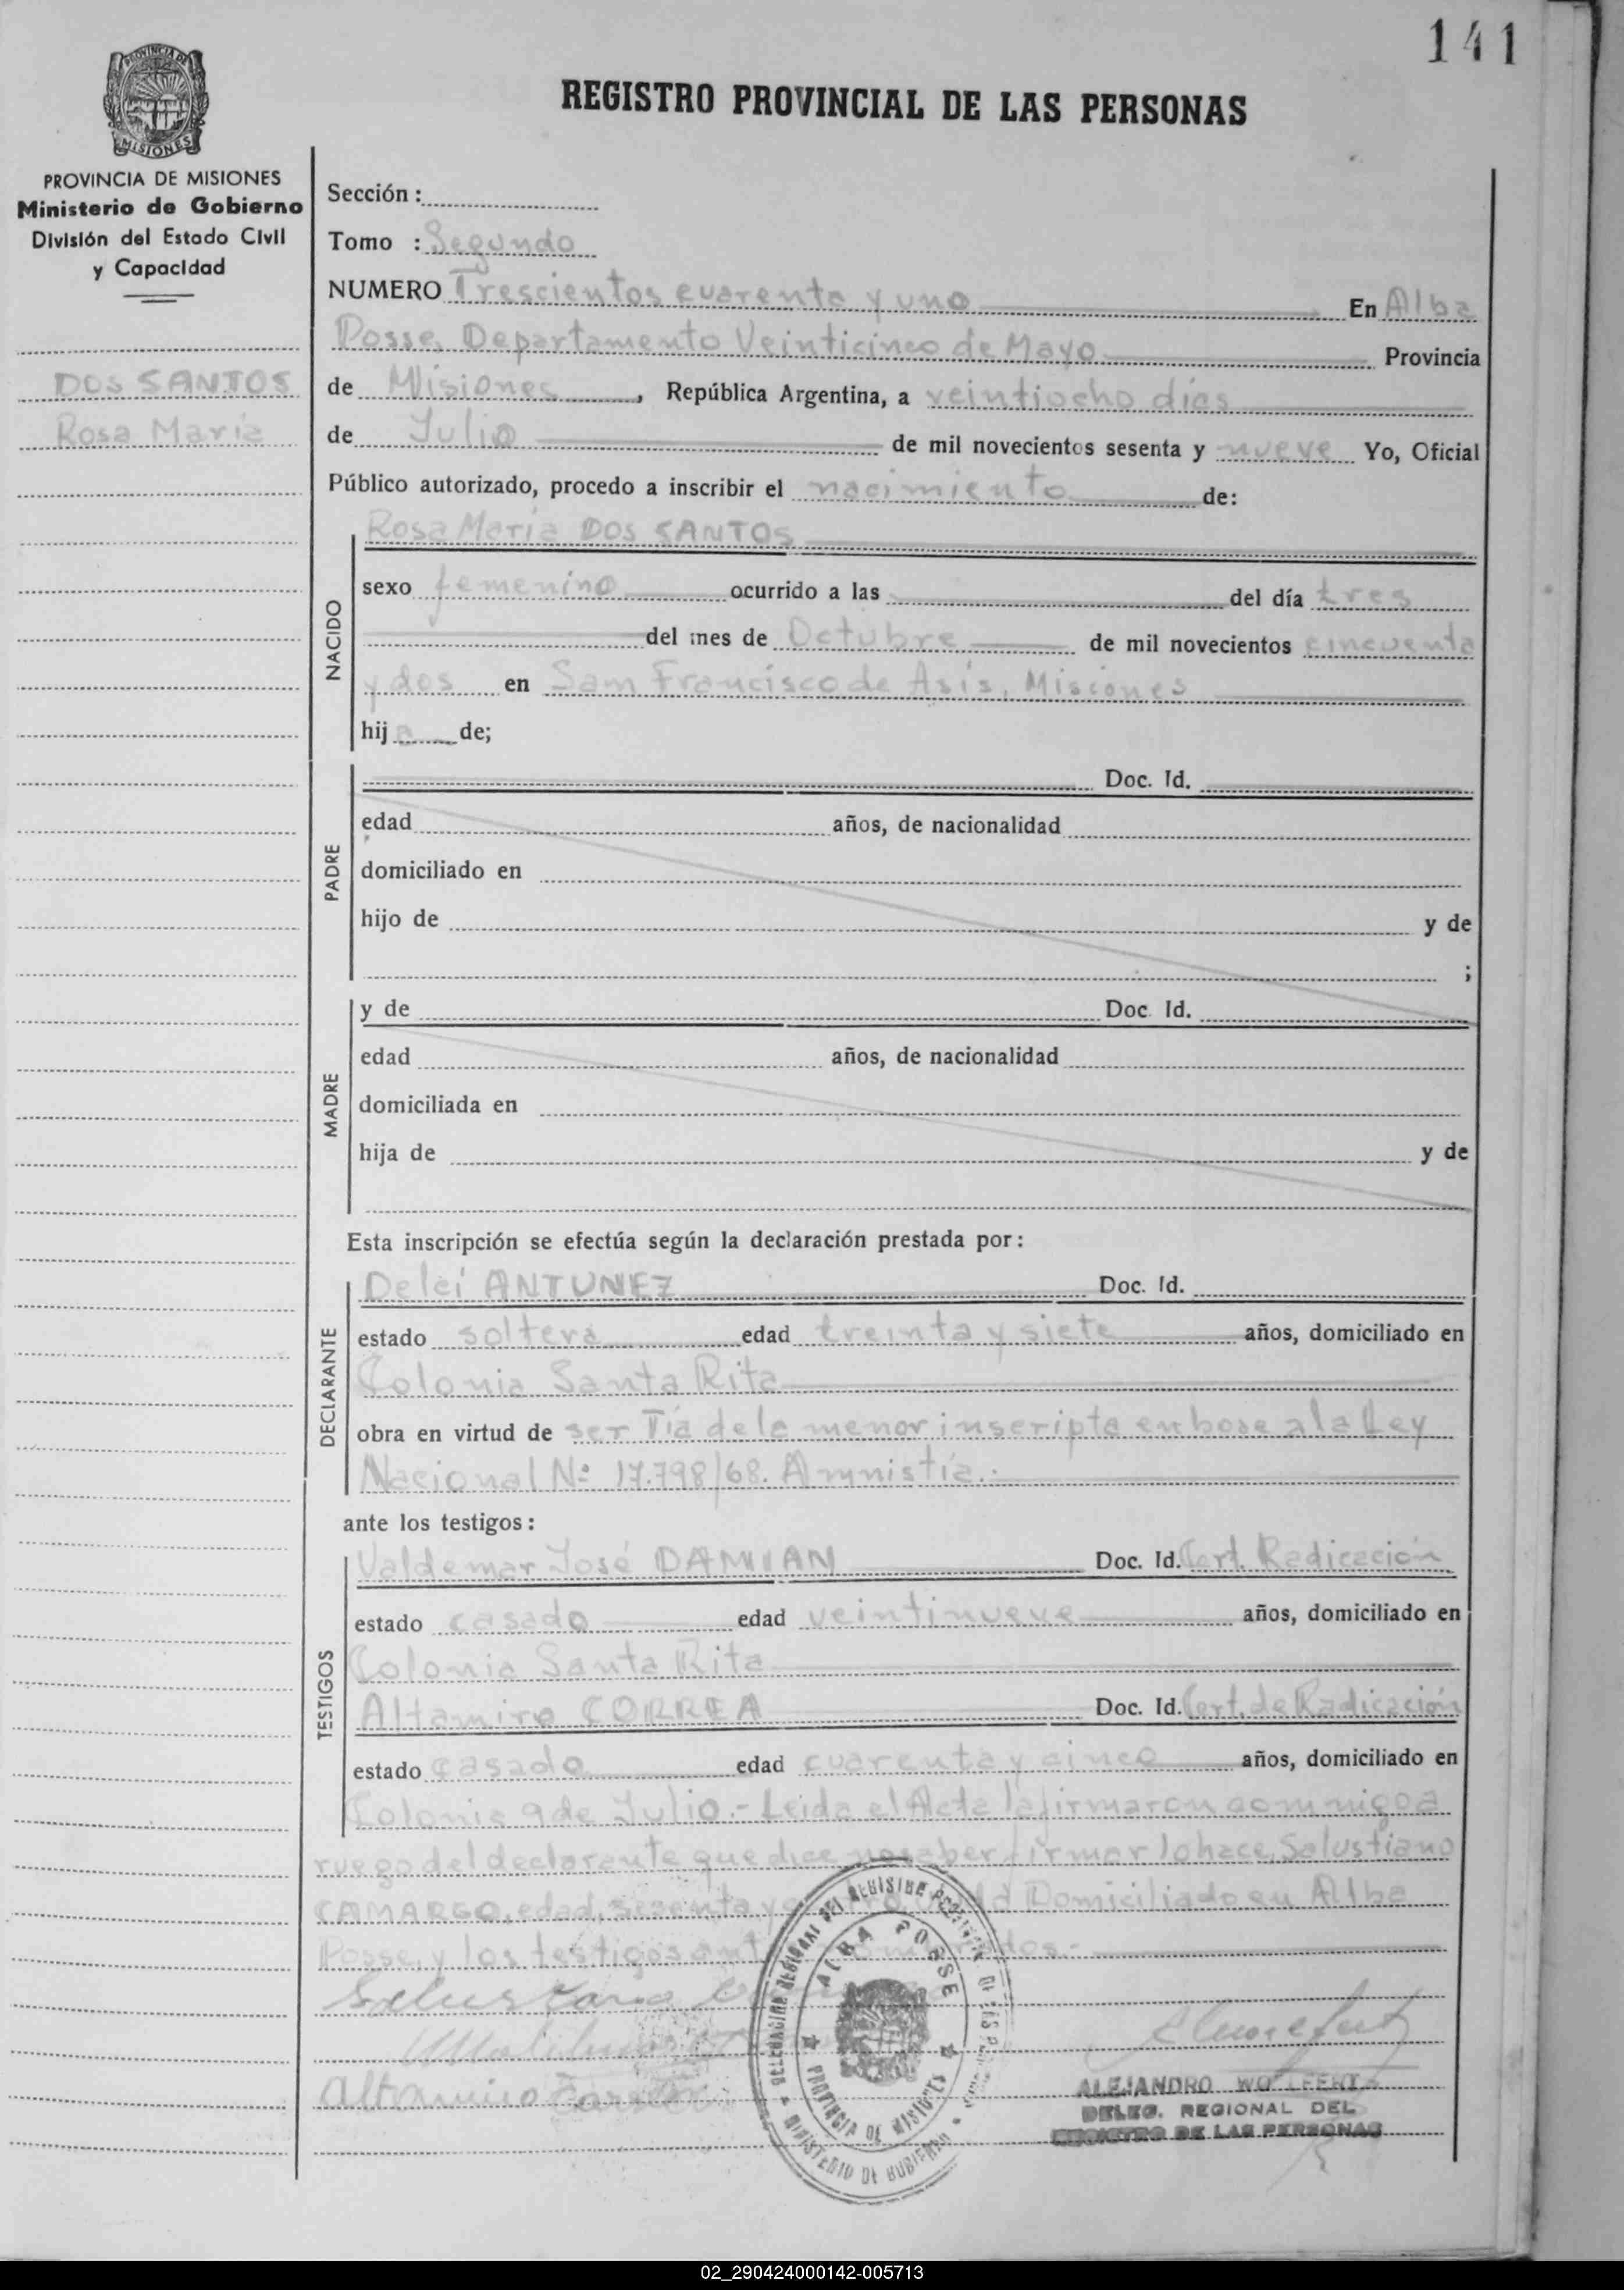 141
REGISTRO PROVINCIAL DE LAS PERSONAS
PROVINCIA DE MISIONES
MISIONES
PROVINCIA DE MISIONES
Ministerio de Gobierno
División del Estado Civil
y Capacidad
DOS SANTOS
Rosa María
Sección :
Tomo : Segundo
NUMERO Trescientos cuarenta y uno En Alba
Posse, Departamento Veinticinco de Mayo Provincia
de Misiones, República Argentina, a veintiocho dias
de Julio de mil novecientos sesenta y nueve Yo, Oficial
Público autorizado, procedo a inscribir el nacimiento de:
NACIDO
Rosa María DOS SANTOS
sexo femenino ocurrido a las del día tres
del mes de Octubre de mil novecientos cincuenta
y dos en San Francisco de Asís, Misiones
hija de;
PADRE
Doc. Id.
edad años, de nacionalidad
domiciliado en
hijo de y de
;
MADRE
y de Doc. Id.
edad años, de nacionalidad
domiciliada en
hija de y de
Esta inscripción se efectúa según la declaración prestada por:
DECLARANTE
Delci ANTUNEZ Doc. Id.
estado soltera edad treinta y siete años, domiciliado en
Colonia Santa Rita
obra en virtud de ser Tía de la menor inscripta en base a la Ley
Nacional Nº 17.798/68. Amnistía.-
ante los testigos:
TESTIGOS
Valdemar José DAMIAN Doc. Id. Cert. Radicación
estado casado edad veintinueve años, domiciliado en
Colonia Santa Rita
Altamiro CORREA Doc. Id. Cert. de Radicación
estado casado edad cuarenta y cinco años, domiciliado en
Colonia 9 de Julio.- Leida el Acta la firmaron conmigo a
ruego del declarante que dice no saber firmar lo hace Salustiano
CAMARGO, edad, sesenta y Domiciliado en Alba
Posse, y los testigos
DELEGACION REGIONAL DEL REGISTRO PROVINCIAL DE LAS PERSONAS
MINISTERIO DE GOBIERNO
ALBA POSSE
PROVINCIA DE MISIONES
Salustiano
Altamiro Correa
ALEJANDRO WOLFFERTZ
DELEG. REGIONAL DEL
REGISTRO DE LAS PERSONAS
02_290424000142-005713